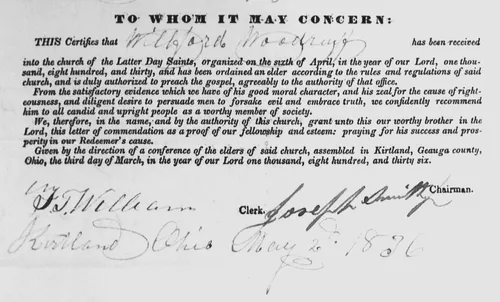 TO WHOM IT MAY CONCERN:
THIS Certifies that Willford Woodruff has been received
into the church of the Latter Day Saints, organized on the sixth of April, in the year of our Lord, one thou-
sand, eight hundred, and thirty, and has been ordained an elder according to the rules and regulations of said
church, and is duly authorized to preach the gospel, agreeably to the authority of that office.
From the satisfactory evidence which we have of his good moral character, and his zeal for the cause of right-
eousness, and diligent desire to persuade men to forsake evil and embrace truth, we confidently recommend
him to all candid and upright people as a worthy member of society.
We, therefore, in the name, and by the authority of this church, grant unto this our worthy brother in
the Lord, this letter of commendation as a proof of our fellowship and esteem: praying for his success and pros-
perity in our Redeemer's cause.
Given by the direction of a conference of the elders of said church, assembled in Kirtland, Geauga county,
Ohio, the third day of March, in the year of our Lord one thousand, eight hundred, and thirty six.
Joseph Smith Chairman.
William Clerk.
Kirtland Ohio May 2d 1836